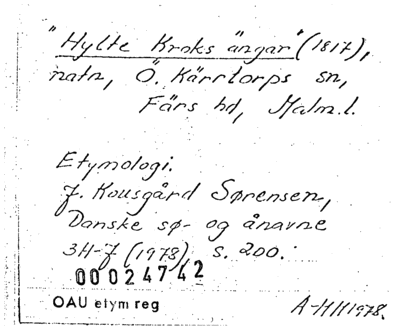 "Hylte Kroks ängar" (1817),
natn, Ö. Kärrtorps sn,
Färs hd, Malm.l.
Etymologi.
J. Kousgård Sørensen,
Danske sø- og ånavne
3H-J (1978), s. 200.
00024742
OAU etym reg
A-H 1978.